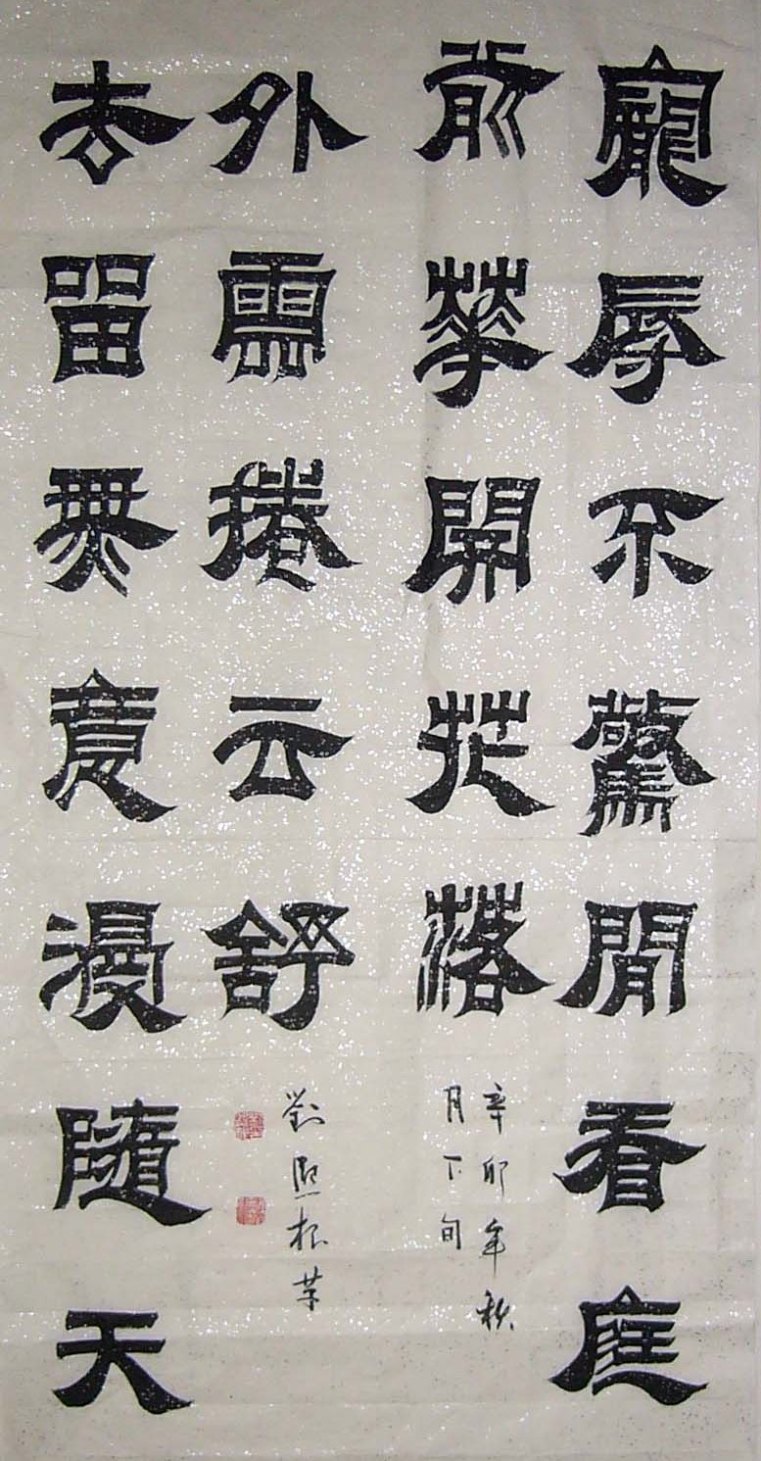 寵辱不驚閒看庭
前華開花落
辛卯年秋
月下旬
去留無意漫隨天
外雲捲云舒
劉根书